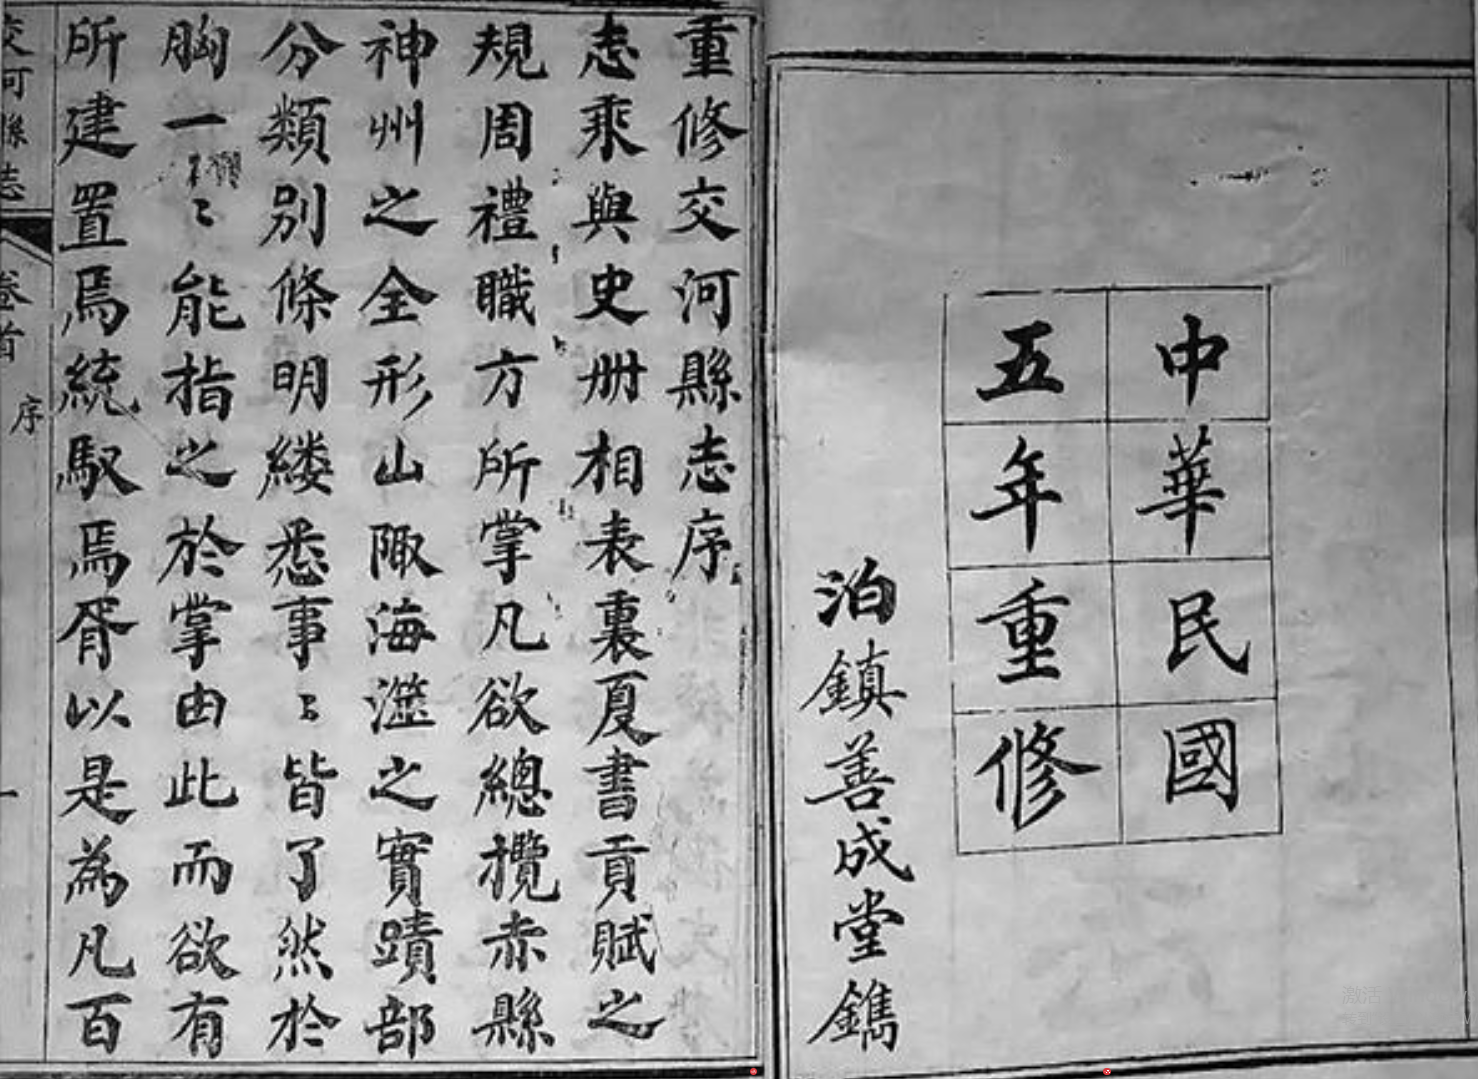 中華民國
五年重修
泊鎮善成堂鐫
重修交河縣志序
志乘與史册相表裏夏書貢賦之
規周禮職方所掌凡欲總攬赤縣
神州之全形山陬海澨之實蹟部
分類別條明縷悉事〻皆了然於
胸一〻能指之於掌由此而欲有
所建置焉統馭焉胥以是為凡百
交河縣志
卷首
序
一